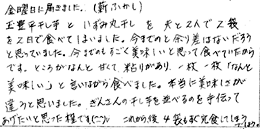 金曜日に届きました。(新ふかし)
玉豊干し芋 と いずみ丸干 を 夫と2人で2袋
を2日で食べてしまいました。今までのと余り差はないだろう
と思っていました。今までのもすごく美味しいと思って食べていたから
です。ところがなんと甘くて粘りがあり、一枚一枚「なんと
美味しい」と言いながら食べました。本当に美味しさが
違うと思いました。ぎんさんの干し芋を並べるのを手伝って
あげたいと思った程です(笑)。これから後4袋もまだ完食してしまう
でしょう。